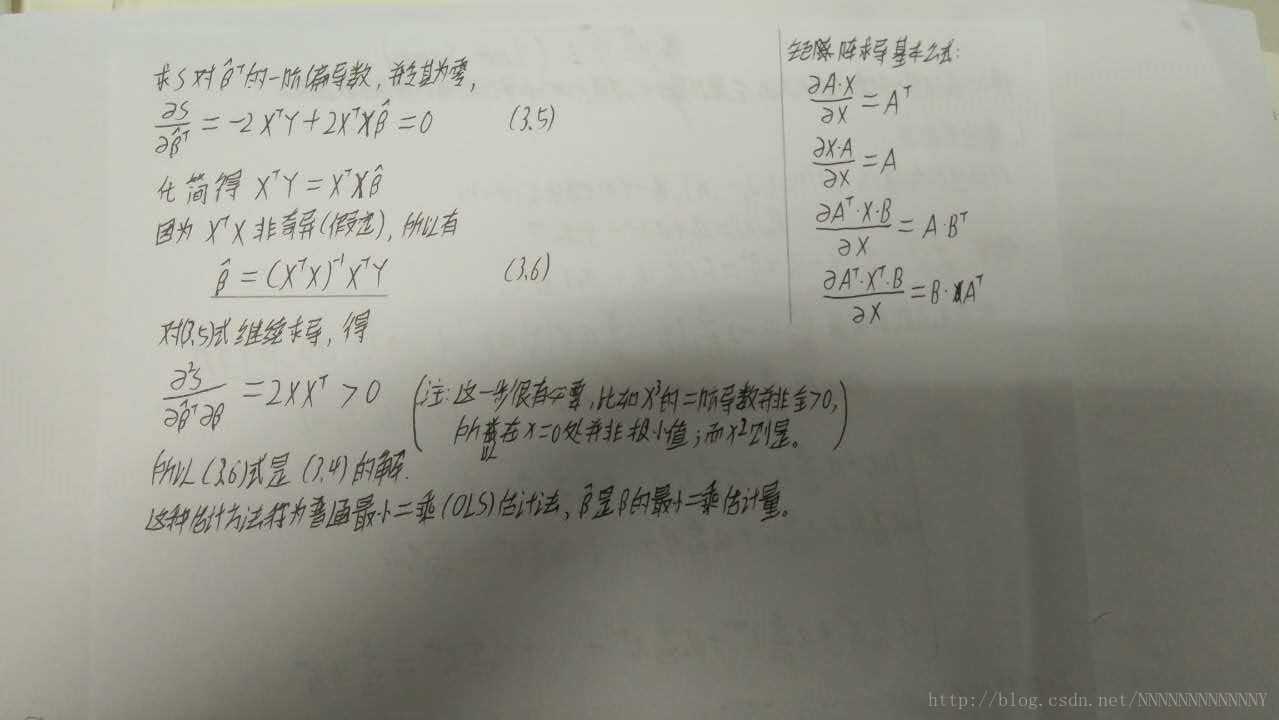 求S对β̂ᵀ的一阶偏导数,并令其为零,
∂S/∂β̂ᵀ = -2XᵀY + 2XᵀXβ̂ = 0 (3.5)
化简得 XᵀY = XᵀXβ̂
因为 XᵀX 非奇异(假定),所以有
β̂ = (XᵀX)⁻¹XᵀY (3.6)
对(3.5)式继续求导,得
∂²S/∂β̂ᵀ∂β̂ = 2XXᵀ > 0
(注:这一步很有必要,比如X³的二阶导数并非全>0,
所以在x=0处并非极小值;而x²则是。)
所以(3.6)式是(3.4)的解.
这种估计方法称为普通最小二乘(OLS)估计法,β̂是β的最小二乘估计量。
矩阵求导基本公式:
∂A·X/∂X = Aᵀ
∂X·A/∂X = A
∂Aᵀ·X·B/∂X = A·Bᵀ
∂Aᵀ·Xᵀ·B/∂X = B·Aᵀ
http://blog.csdn.net/NNNNNNNNNNNNNY